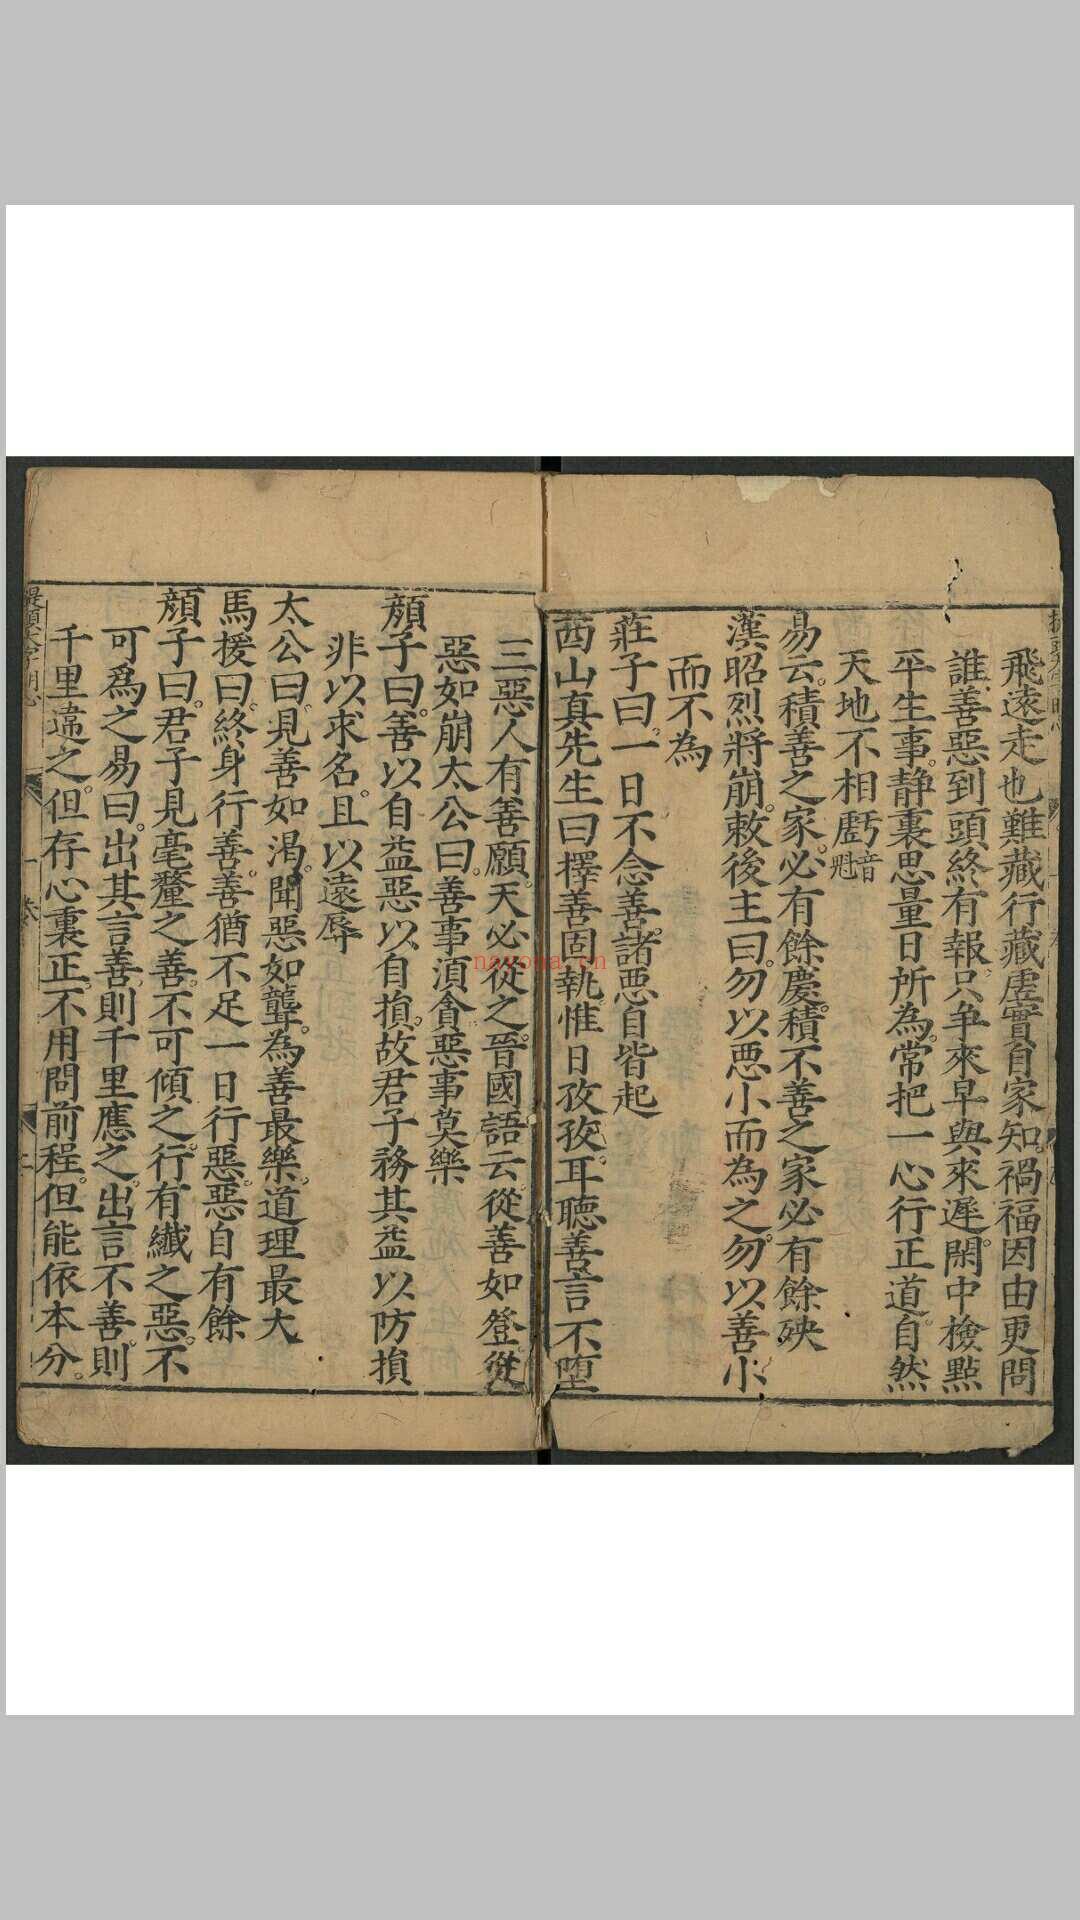 飛遠走也難藏行藏虛實自家知禍福因由更問
誰善惡到頭終有報只争來早與來遲閑中檢點
平生事静裏思量日所為常把一心行正道自然
天地不相虧音魁
易云積善之家必有餘慶積不善之家必有餘殃
漢昭烈將崩敕後主曰勿以惡小而為之勿以善小
而不為
莊子曰一日不念善諸惡自皆起
西山真先生曰擇善固執惟日孜孜耳聽善言不堕
三惡人有善願天必從之晉國語云從善如登從
惡如崩太公曰善事須貪惡事莫樂
顏子曰善以自益惡以自損故君子務其益以防損
非以求名且以遠辱
太公曰見善如渴聞惡如聾為善最樂道理最大
馬援曰終身行善善猶不足一日行惡惡自有餘
顏子曰君子見毫釐之善不可傾之行有纖之惡不
可爲之易曰出其言善則千里應之出言不善則
千里違之但存心裏正不用問前程但能依本分
提頭大字明心
一卷
二
nayona.cn